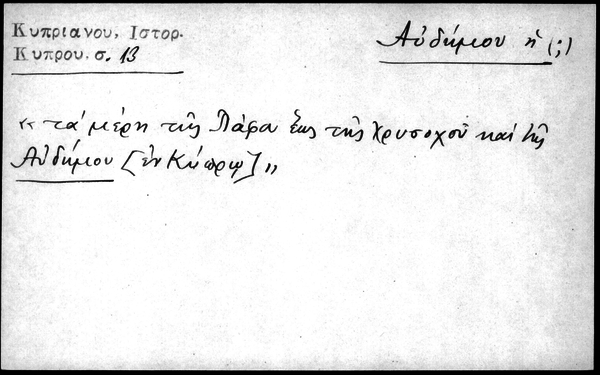 Κυπριανου, Ιστορ.
Κυπρου. σ. 13
Αὐδήμου ἡ (;)
« τὰ μέρη τῆς Πάφου ἕως τῆς Χρυσοχοῦ καὶ τῆς
Αὐδήμου [ἐν Κύπρῳ] »